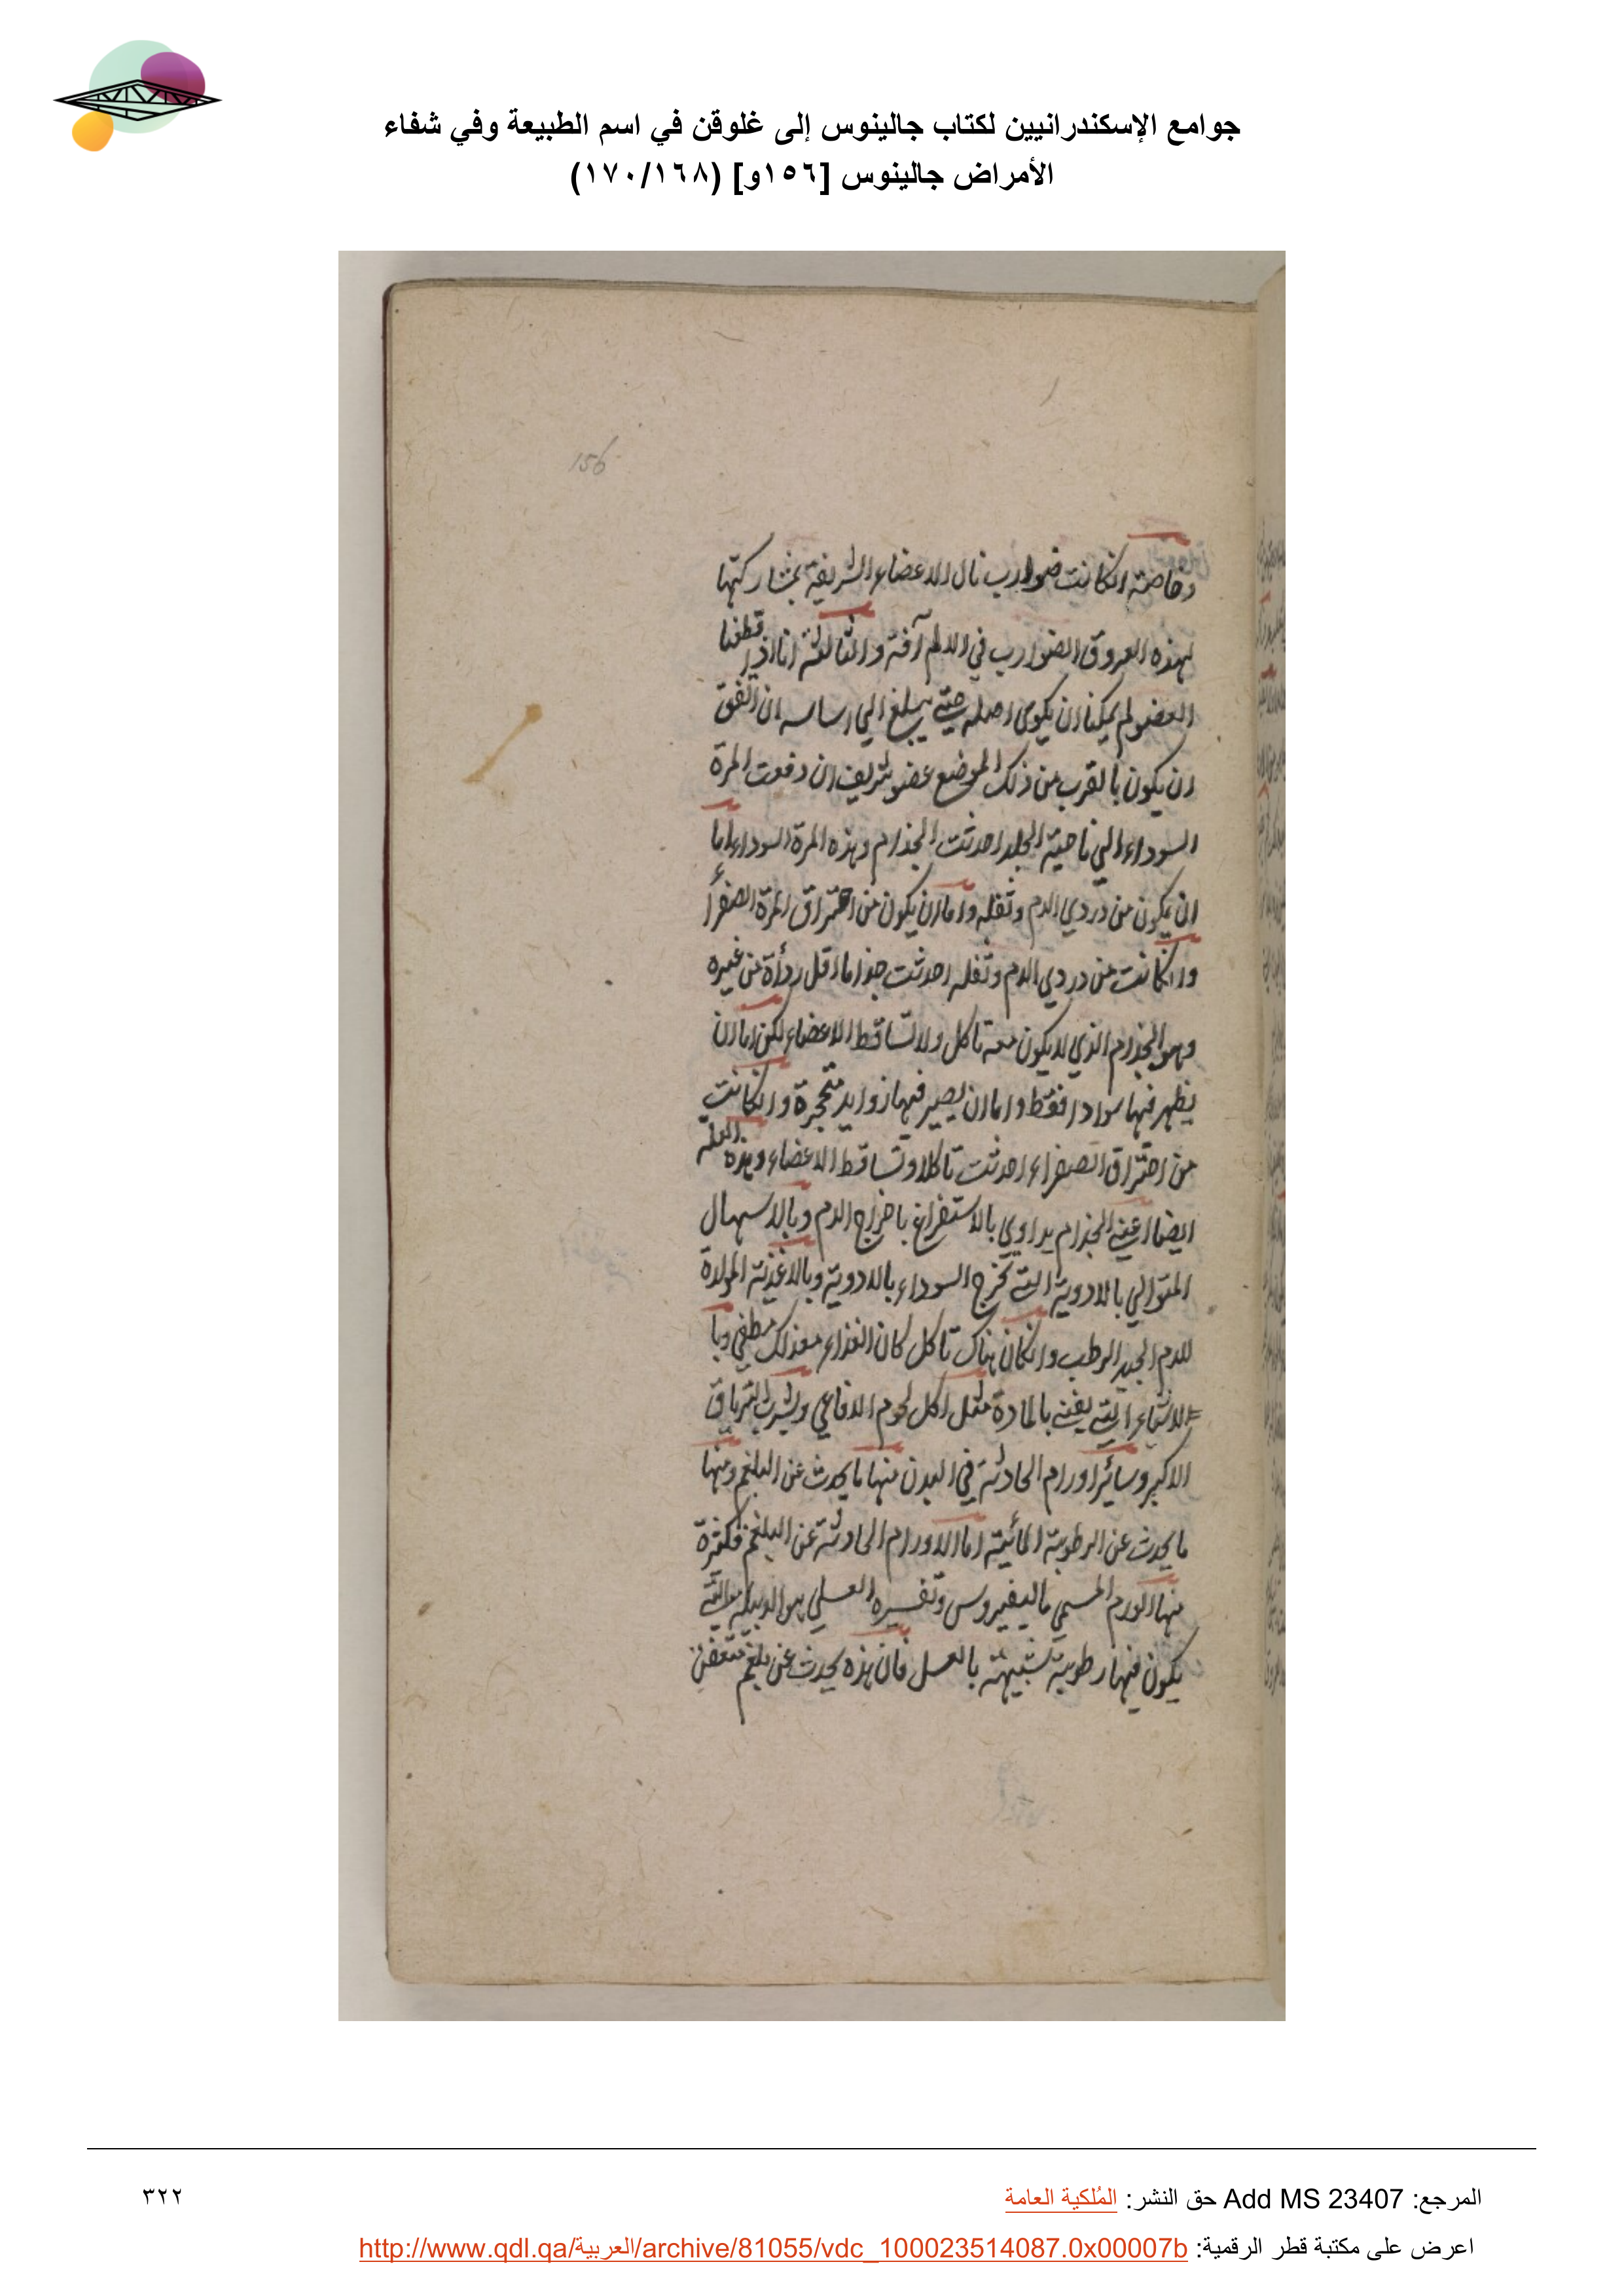 جوامع الإسكندرانيين لكتاب جالينوس إلى غلوقن في اسم الطبيعة وفي شفاء
الأمراض جالينوس [١٥٦و] (١٧٠/١٦٨)
156
وخاصة انكانت ضوارب نال الاعضاء الشريفة بمشاركتها
لهذه العروق الضوارب في الالم آفة والثالثة انا اذا قطعنا
العضو لم يمكنا ان يكوى اصله حتى يبلغ الي اساسه ان اتفق
ان يكون بالقرب من ذلك الموضع عضو شريف ان دفعت المرة
السوداء الي ناحية الجلد احدثت الجذام وهذه المرة السوداء اما
ان يكون من دردي الدم وثفله واما ان يكون من احتراق المرة الصفرأ
وانكانت من دردي الدم وثفله احدثت جذاما اقل رداة من غيره
وهو الجذام الذي لا يكون معه تاكل ولا تساقط الاعضاء لكن اما ان
يظهر فيها سوادا فقط واما ان يصير فيها زوايد متحجرة وانكانت
من احتراق الصفراء احدثت تاكلا وتساقط الاعضاء وهذه العلة
ايضا اعني الجذام يداوي بالاستفراغ باخراج الدم وبالاسهال
المتوالي بالادوية التي تخرج السوداء بالادوية وبالاغذية المولدة
للدم الجيد الرطب وانكان هناك تاكل كان الغذاء معذلك مطفي وبا
الاشياء التي يفني بالمادة مثل اكل لحوم الافاعي وشرب الترياق
الاكبر وسائر اورام الحادثة في البدن منها ما يحدث عن البلغم ومنها
ما يحدث عن الرطوبة المائية اما الاورام الحادثة عن البلغم فكثرة
منها الورم المسمي ماليفيروس وتفسيره العسلي هو الدبيلة التي
يكون فيها رطوبة شبيهة بالعسل فان هذه يحدث عن بلغم متعفن
المرجع: Add MS 23407 حق النشر: المُلكية العامة
٣٢٢
اعرض على مكتبة قطر الرقمية: http://www.qdl.qa/العربية/archive/81055/vdc_100023514087.0x00007b